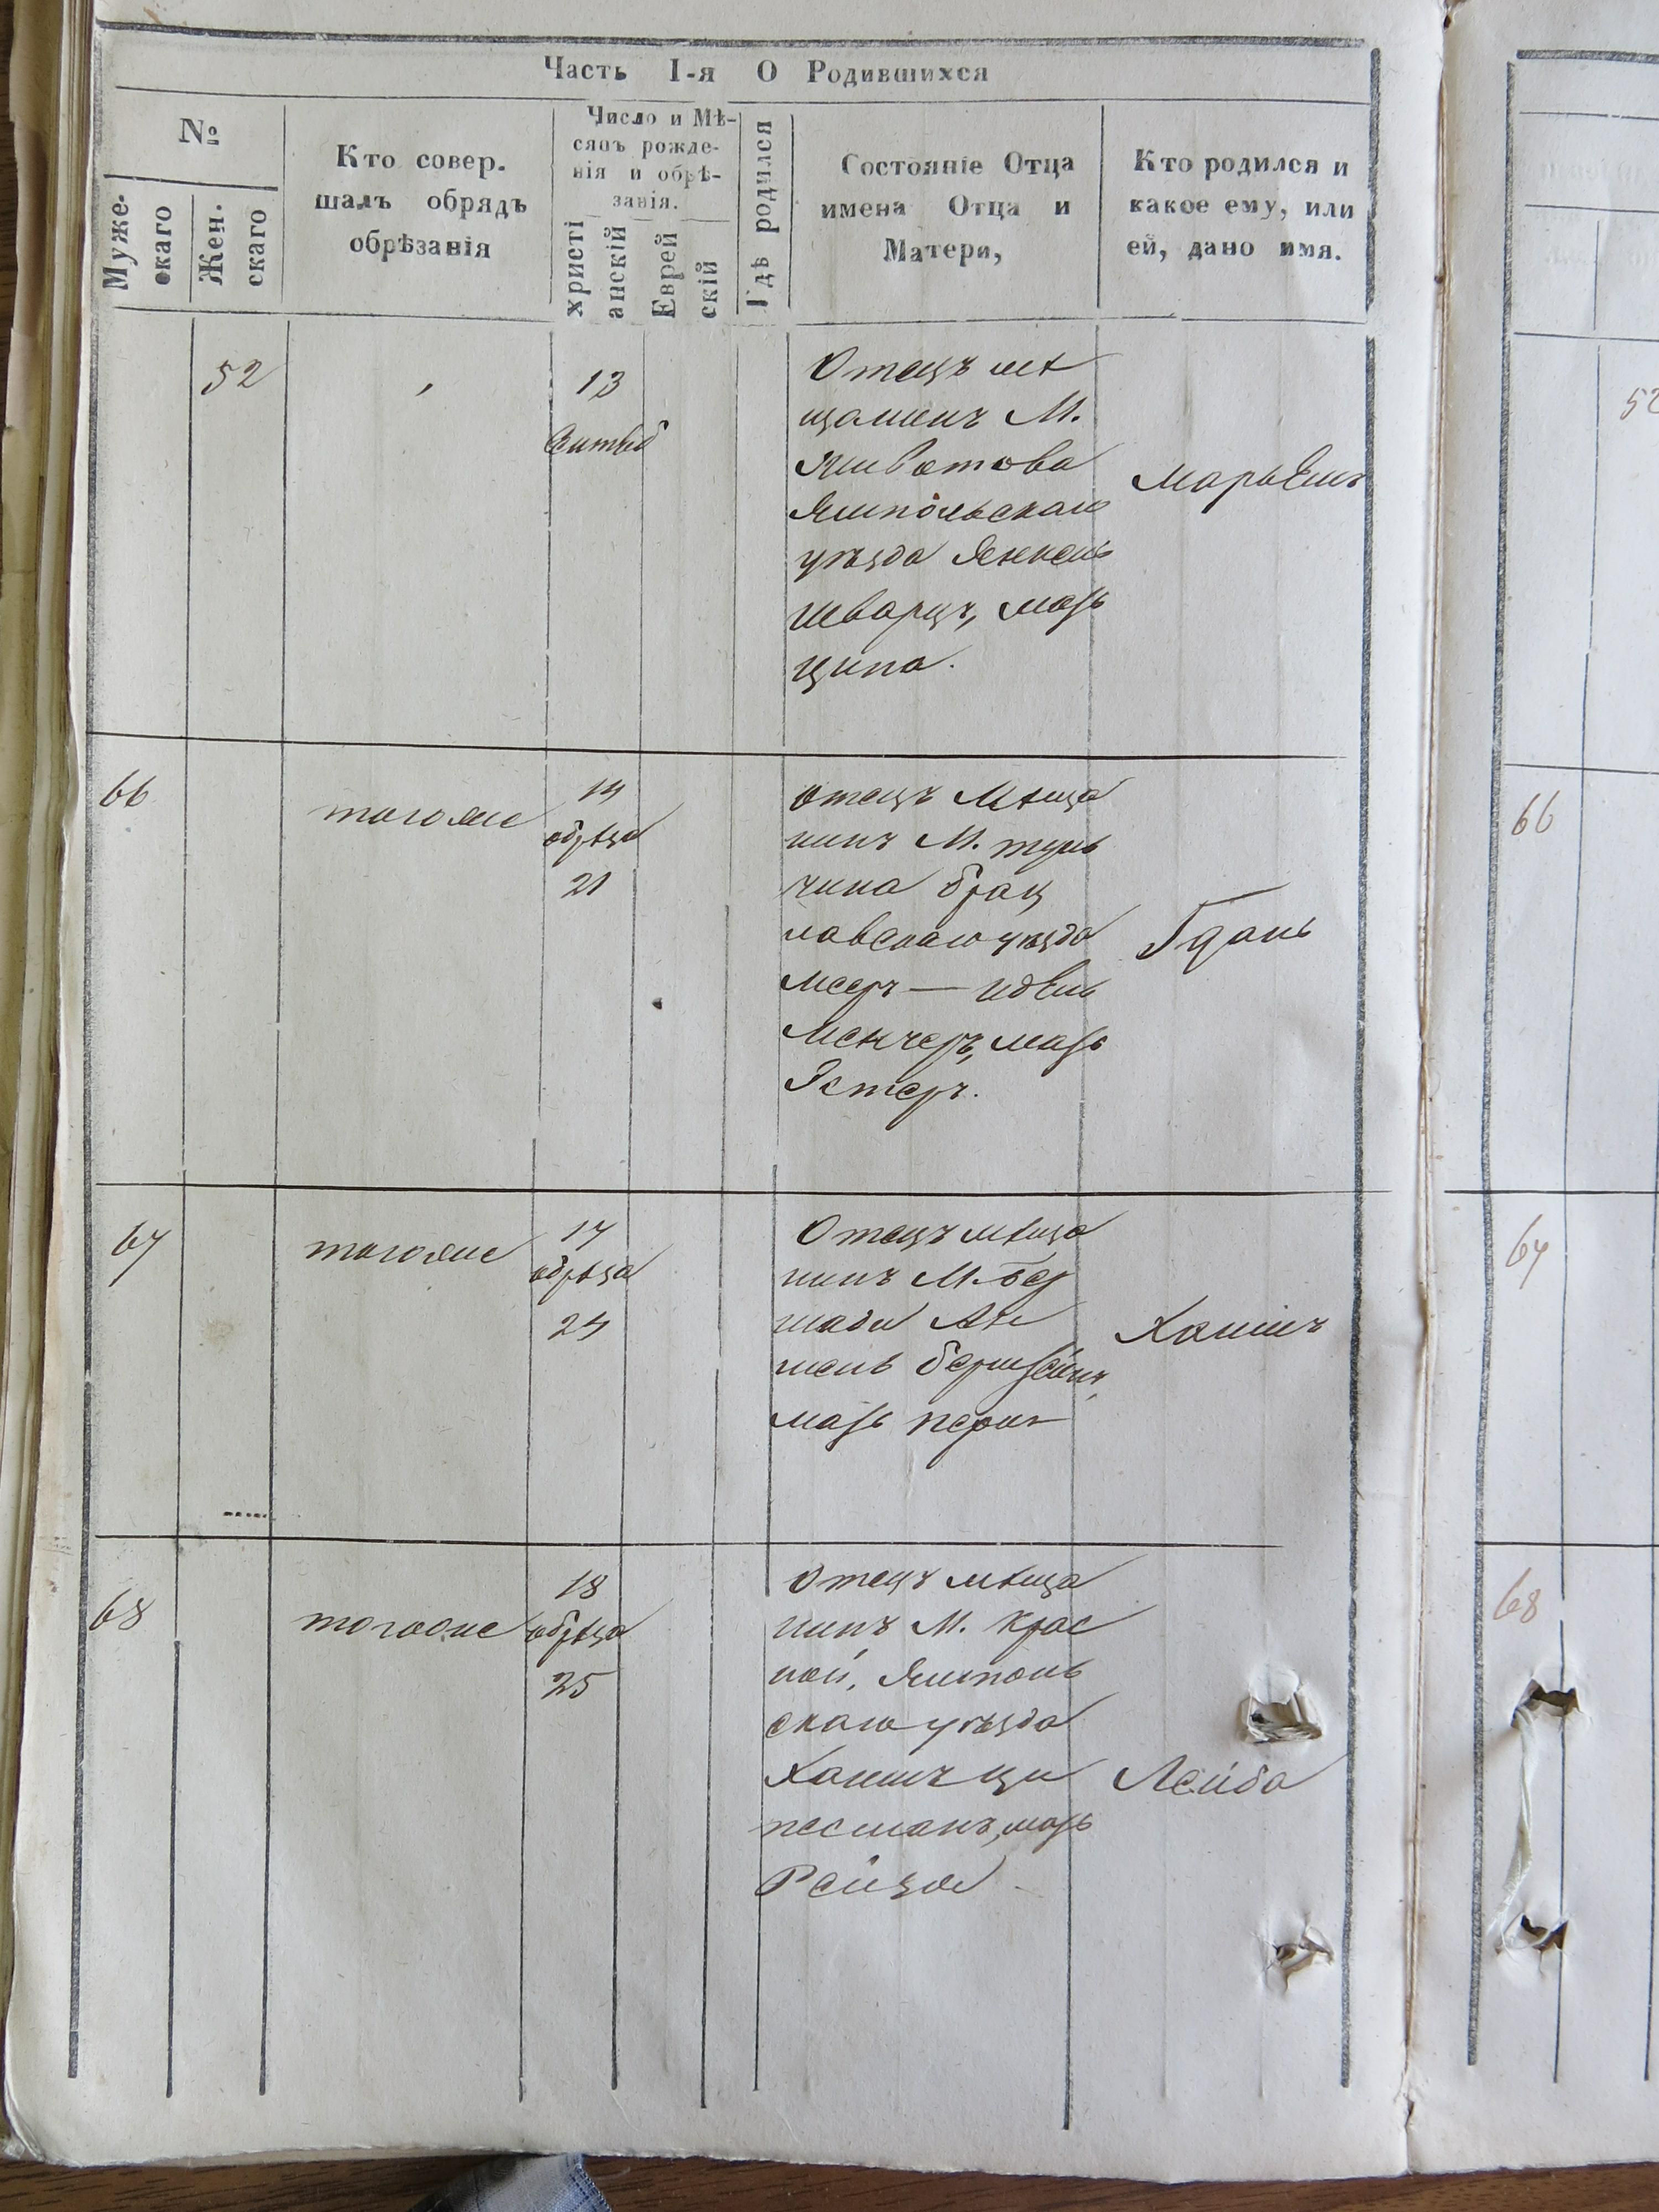 Часть I-я О Родившихся
№
Муже-
скаго
Жен.
скаго
Кто совер-
шалъ обрядъ
обрѣзанія
Число и Мѣ-
сяцъ рожде-
нія и обрѣ-
занія.
христі
анскій
Еврей
скій
Гдѣ родился
Состояніе Отца
имена Отца и
Матери,
Кто родился и
какое ему, или
ей, дано имя.
52
13
Отецъ мѣ
щанинъ М.
Животова
Ямпольскаго
уѣзда Янкель
Шварцъ, мать
Ципа.
52
66
тогоже
14
обрѣза
21
Отецъ Мѣща
нинъ М. Туль
чина Брац
лавскаго уѣзда
Мееръ — Идель
Менчеръ, мать
Эстеръ.
66
67
тогоже
17
обрѣза
24
Отецъ мѣща
нинъ М. Бер
шади
мать Перль
Хаимъ
67
68
тогоже
18
обрѣза
25
Отецъ мѣща
нинъ М. Крас
ной, Ямполь
скаго уѣзда
Хаимъ Ци
песманъ, мать
Рейза
Лейба
68